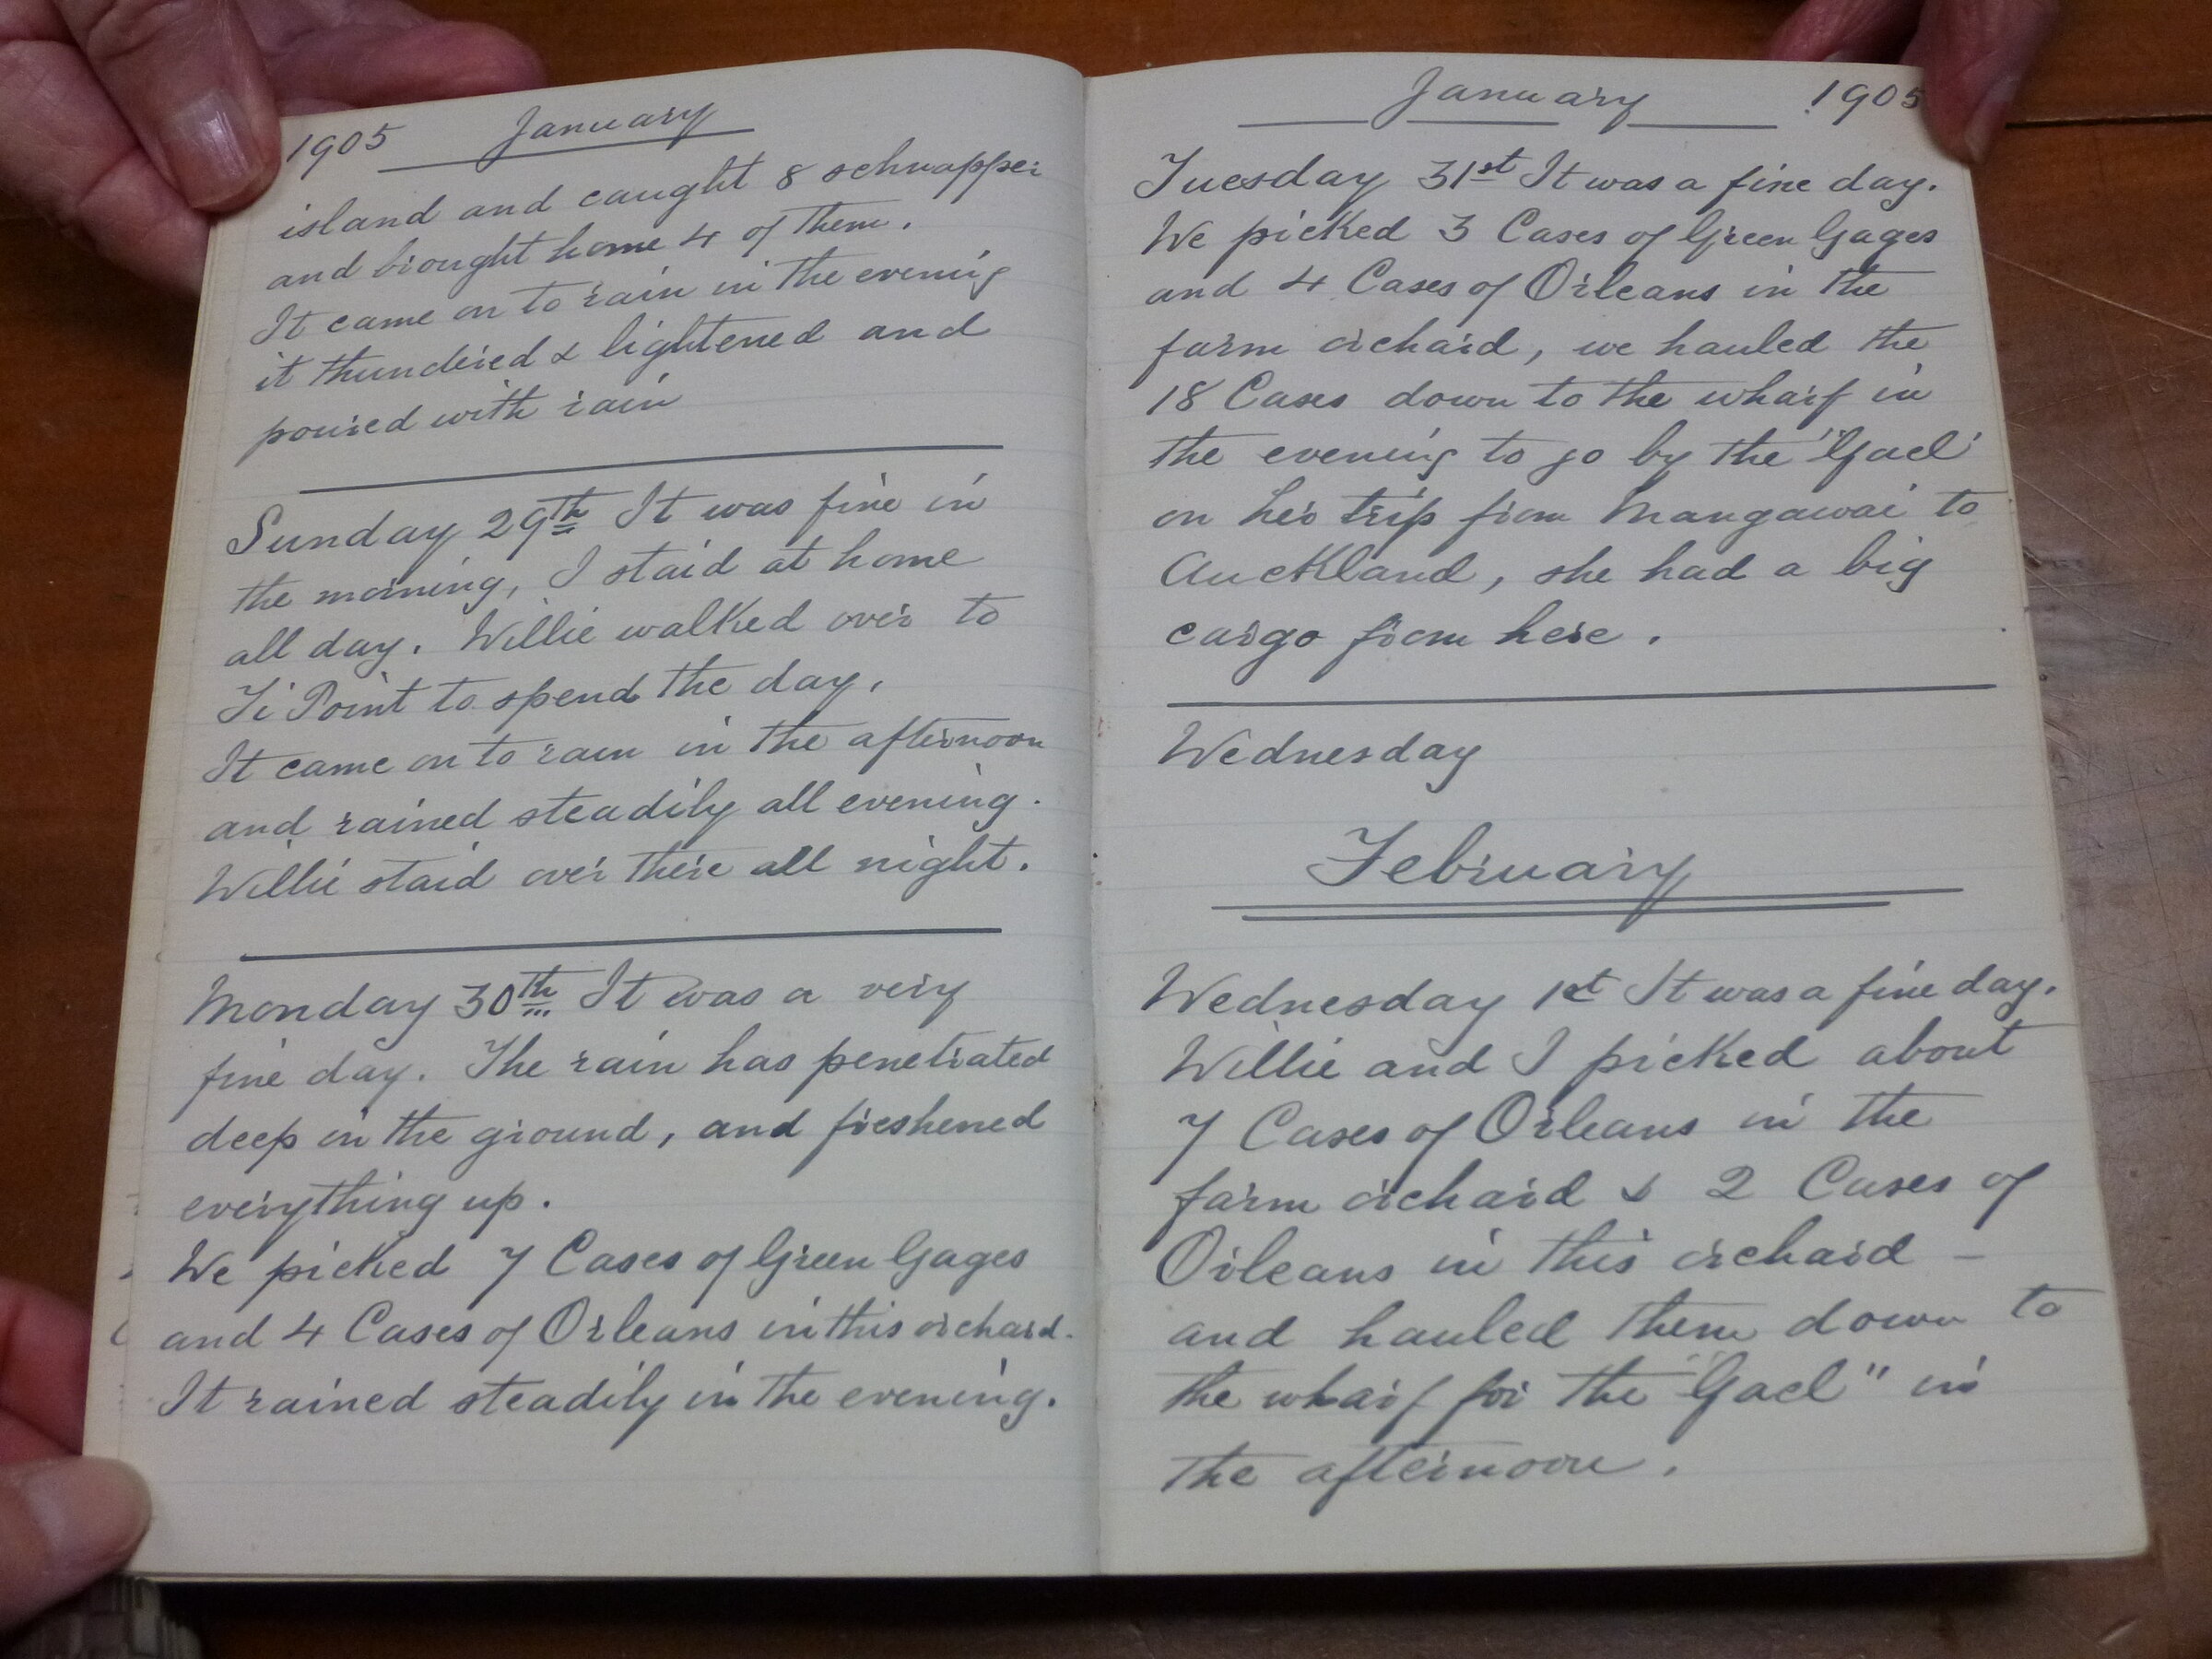 1905 January
island and caught 8 schnapper
and brought home 4 of them.
It came on to rain in the evening
it thundered & lightened and
poured with rain
Sunday 29th It was fine in
the morning, I staid at home
all day. Willie walked over to
Ti Point to spend the day.
It came on to rain in the afternoon
and rained steadily all evening.
Willie staid over there all night.
Monday 30th It was a very
fine day. The rain has penetrated
deep in the ground, and freshened
everything up.
We picked 7 Cases of Green Gages
and 4 Cases of Orleans in this orchard.
It rained steadily in the evening.
January 1905
Tuesday 31st It was a fine day.
We picked 3 Cases of Green Gages
and 4 Cases of Orleans in the
farm orchard, we hauled the
18 Cases down to the wharf in
the evening to go by the "Gael"
on her trip from Mangawai to
Auckland, she had a big
cargo from here.
Wednesday
February
Wednesday 1st It was a fine day.
Willie and I picked about
7 Cases of Orleans in the
farm orchard & 2 Cases of
Orleans in this orchard –
and hauled them down to
the wharf for the "Gael" in
the afternoon.